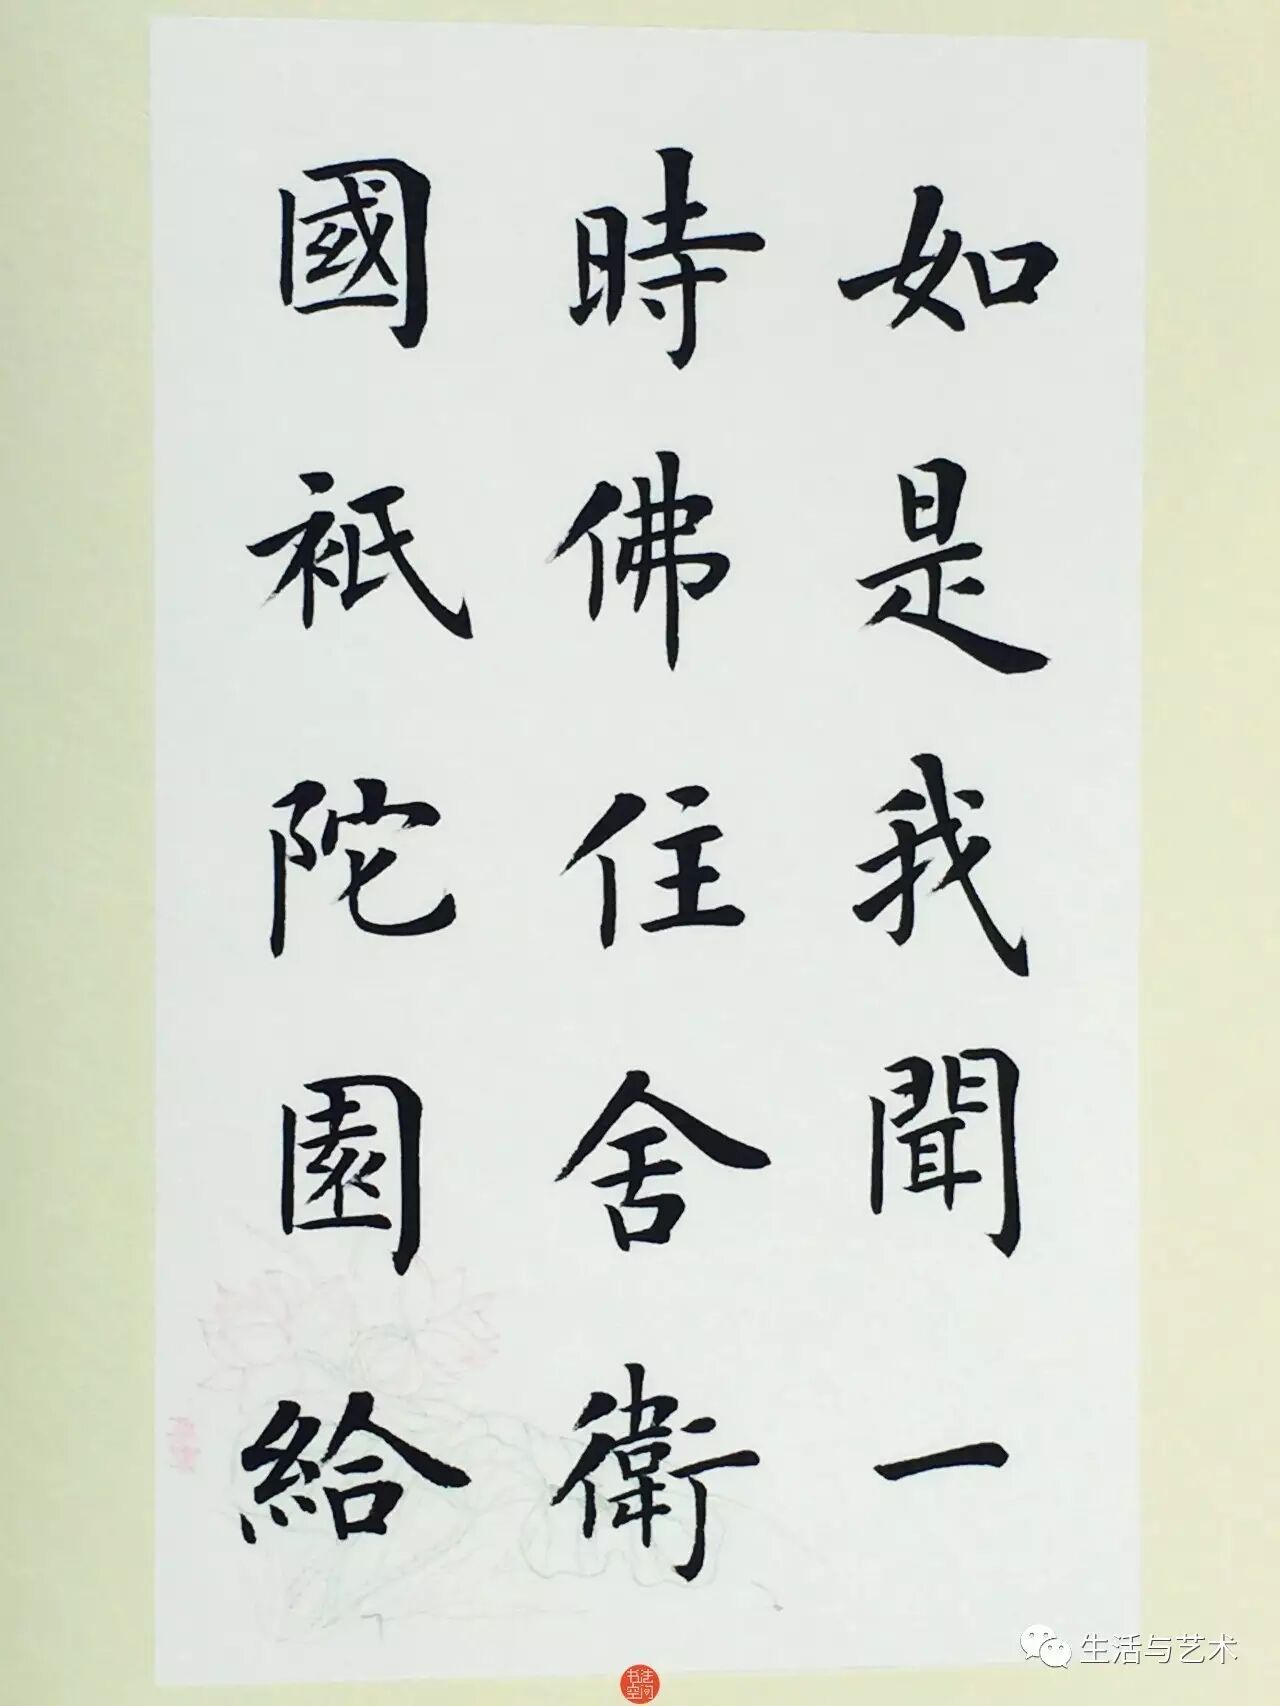 如是我聞一
時佛住舍衛
國祇陀園給
生活与艺术
书法
空间